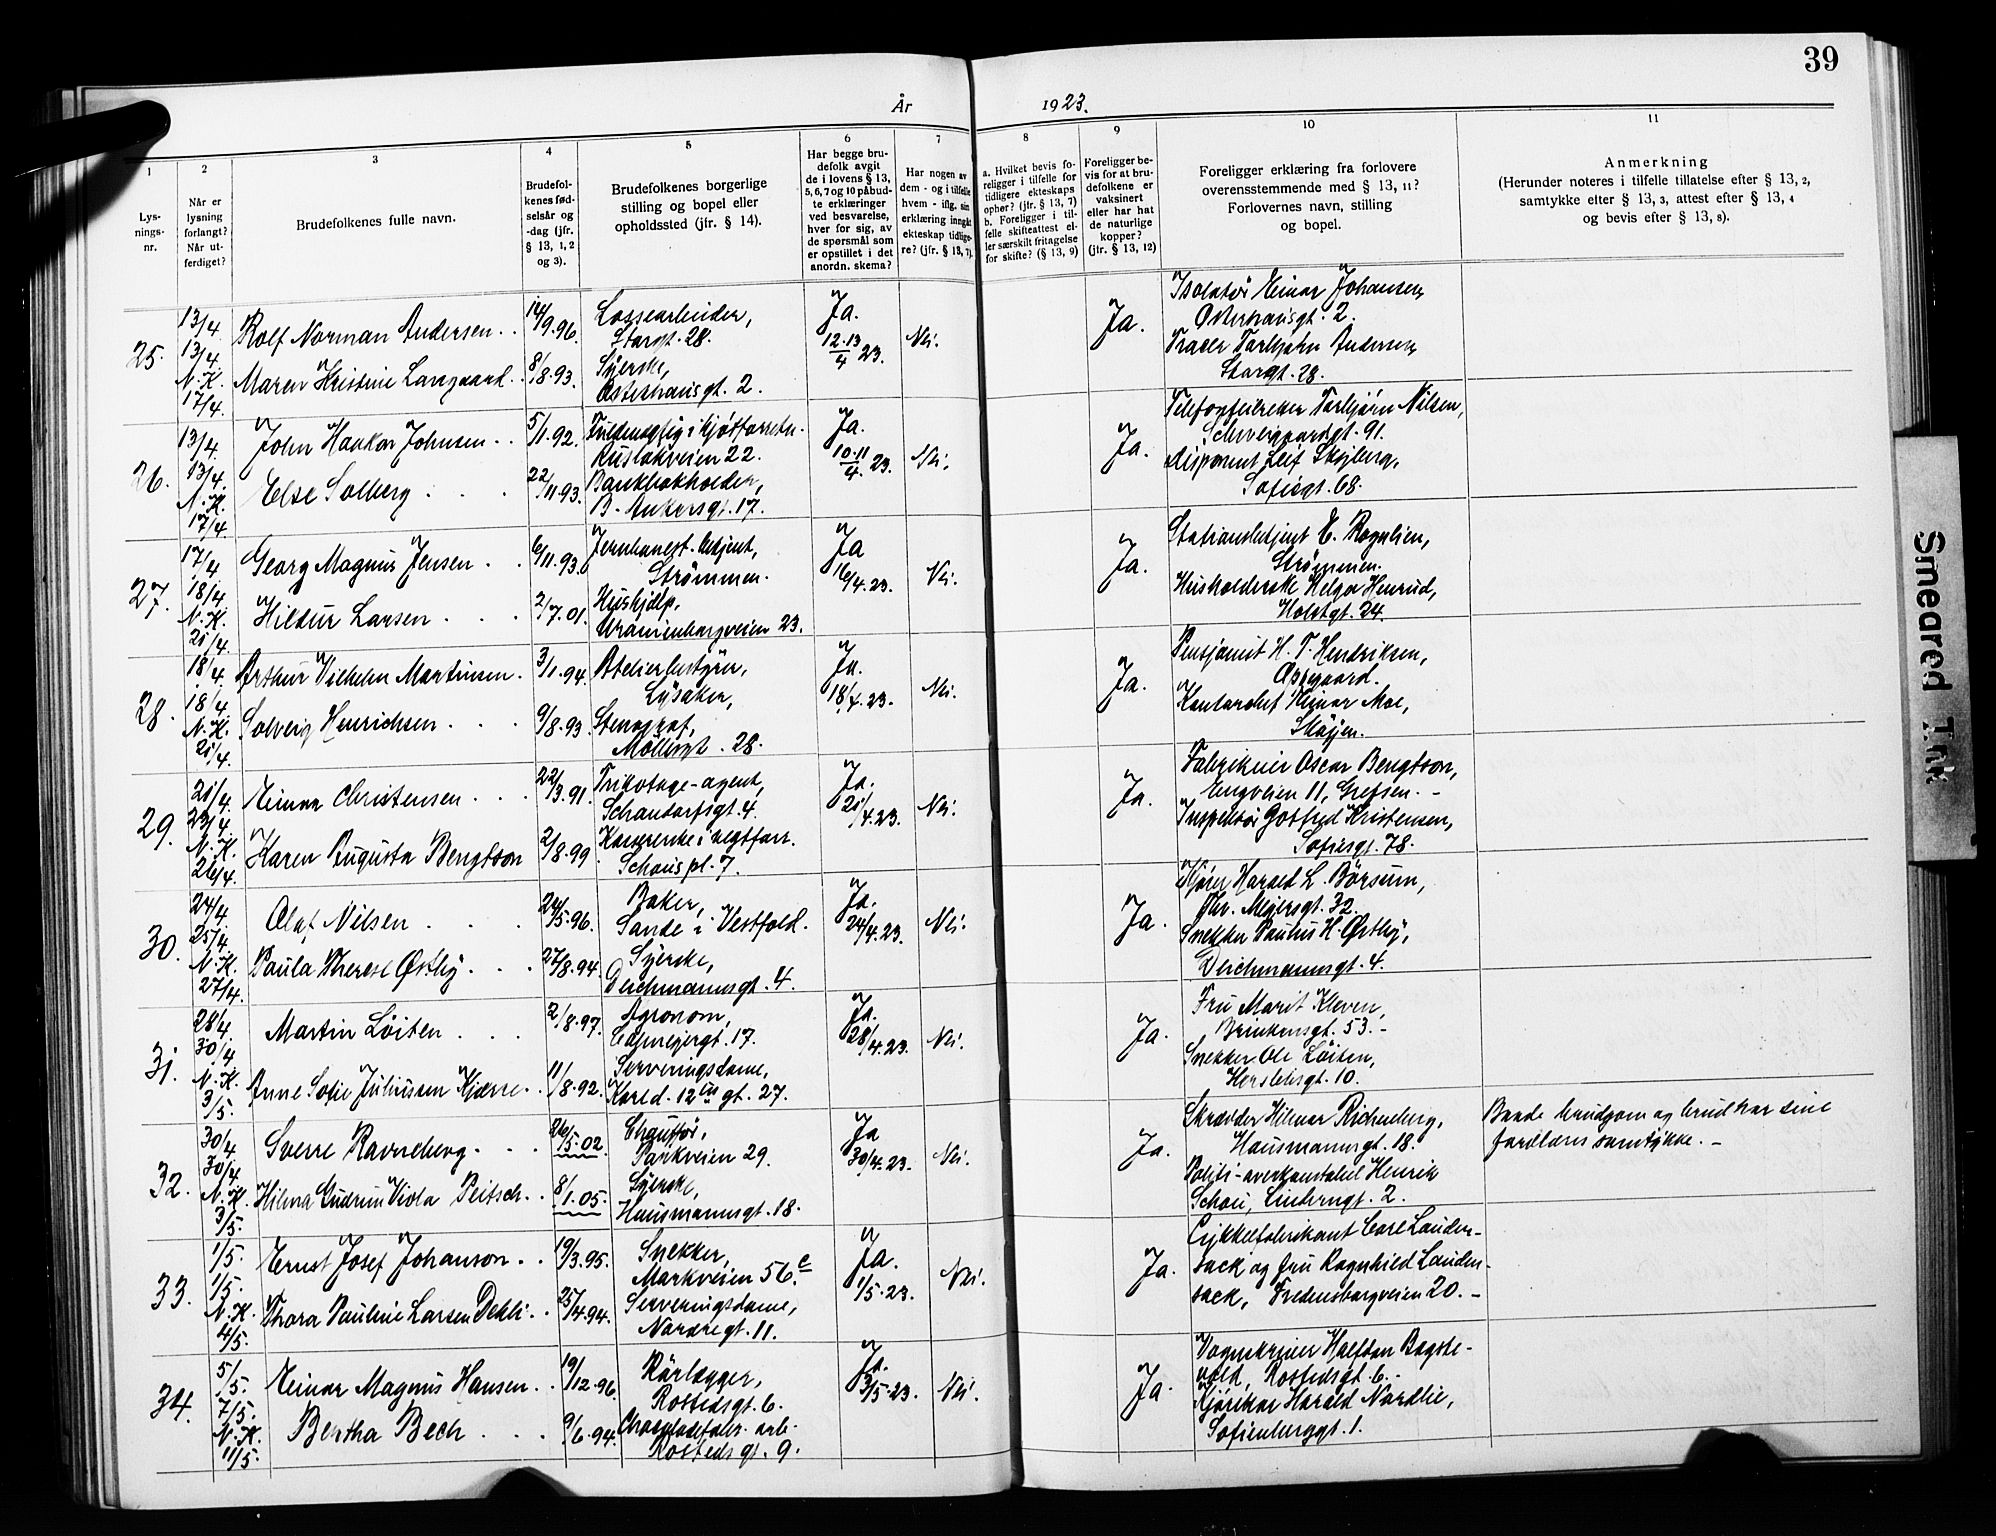 39
År 1923.
1
Lys-
nings-
nr.
2
Når er
lysning
forlangt?
Når ut-
ferdiget?
3
Brudefolkenes fulle navn.
4
Brudefol-
kenes fød-
selsår og
-dag (jfr.
§ 13, 1, 2
og 3).
5
Brudefolkenes borgerlige
stilling og bopel eller
opholdssted (jfr. § 14).
6
Har begge bru-
defolk avgit
de i lovens § 13,
5, 6, 7 og 10 påbud-
te erklæringer
ved besvarelse,
hver for sig, av
de spørsmål som
er opstillet i det
anordn. skema?
7
Har nogen av
dem - og i tilfelle
hvem - iflg. sin
erklæring inngått
ekteskap tidlige-
re? (jfr. § 13, 7).
8
a. Hvilket bevis fo-
religger i tilfelle for
tidligere ekteskaps
ophør? (jfr. § 13, 7)
b. Foreligger i til-
felle skifteattest el-
ler særskilt fritagelse
for skifte? (§ 13, 9)
9
Foreligger be-
vis for at bru-
defolkene er
vaksinert
eller har hat
de naturlige
kopper?
(jfr. § 13, 12)
10
Foreligger erklæring fra forlovere
overensstemmende med § 13, 11?
Forlovernes navn, stilling
og bopel.
11
Anmerkning
(Herunder noteres i tilfelle tillatelse efter § 13, 2,
samtykke efter § 13, 3, attest efter § 13, 4
og bevis efter § 13, 8).
25.
13/4
13/4.
N.K.
17/4.
Rolf Norman Andersen . .
Maren Kristine Langaard . .
14/9.96.
8/8.93.
Lossearbeider,
Storgt. 28.
Syerske,
Osterhausgt. 2.
Ja.
12.13/4 23.
Nei.
Ja.
Isolatør Einar Johansen,
Osterhausgt. 2.
Torbjørn Andersen,
Storgt. 28.
26.
13/4.
13/4.
N.K.
17/4.
John Haakon Johnsen . .
Else Solberg . . .
5/1.92.
22/11.93.
Ruslökveien 22.
Bankbokholder,
B. Ankersgt. 17.
Ja.
10.11/4 23.
Nei.
Ja.
Torbjørn Nilsen,
Schweigaardgt. 91.
disponent Leif Skogberg,
Sofiegt. 68.
27.
17/4
18/4
N.K.
21/4.
Georg Magnus Jensen . .
Hildur Larsen . . .
6/11.93.
2/7.01.
Jernbanest. betjent,
Strømmen.
Hushjelp,
Uranienborgveien 23.
Ja
16/4.23.
Nei.
Ja.
Stationsbetjent E. Rognlien,
Strømmen.
Husholderske Helga Henrud,
Holstgt. 24.
28.
18/4
18/4.
N.K.
21/4.
Arthur Vilhelm Martinsen .
Solveig Henrichsen . . .
3/1.94.
9/8.93.
Atelierbestyrer,
Lysaker,
Stenograf,
Möllergt. 28.
Ja.
18/4.23.
Nei.
Ja.
Pensjonist H. T. Hendriksen,
Oppegaard.
Kontorchef Einar Moe,
Skøyen.
29.
21/4.
23/4.
N.K.
26/4.
Einar Christensen . . .
Karen Augusta Bengtson
22/3.91.
2/8.99.
Trikotage-agent,
Schandorfsgt. 4.
Schouspl. 7.
Ja.
21/4.23.
Nei.
Ja.
Fabrikeier Oscar Bengtson,
Engveien 11, Grefsen. -
Inspektør Gotfred Kristensen,
Sofiesgt. 78.
30.
24/4.
25/4.
N.K.
27/4.
Olaf Nilsen . . .
Paula Therese Østby . . .
24/5.96.
27/8.94.
Baker,
Sande i Vestfold.
Syerske,
Deichmannsgt. 4.
Ja.
24/4.23.
Nei.
Ja.
Kjører Harald L. Börsum,
Thv. Meyersgt. 32.
Snekker Paulus H. Østby,
Deichmannsgt. 4.
31.
28/4.
30/4.
N.K.
3/5.
Martin Löiten . . .
Anne Sofie Juliussen Kjærre . .
2/8.97.
11/8.92.
Agronom,
17.
Serveringsdame,
Karl d. 12tes gt. 27.
Ja.
28/4.23.
Nei.
Ja.
Fru Marit Kleven,
Brinkensgt. 53. -
Snekker Ole Löiten,
Herslebsgt. 10.
32.
30/4.
30/4.
N.K.
3/5.
Sverre Ravneberg . . .
Hilma Gudrun Viola Peitsch . .
26/5.02.
8/1.05.
Chauffør,
Parkveien 29.
Syerske,
Hausmannsgt. 18.
Ja
30/4.23.
Nei.
Ja.
Skrædder Hilmar Richenberg,
Hausmannsgt. 18.
Politi-overkonstabel Henrik
Schou, Linderngt. 2.
Baade brudgom og brud har sine
foreldres samtykke. -
33.
1/5.
1/5.
N.K.
4/5.
Ernst Josef Johanson . .
Thora Pauline Larsen Dehli . .
19/3.95.
25/4.94.
Snekker,
Markveien 56c.
Serveringsdame,
Nordregt. 11.
Ja.
1/5.23.
Nei.
Ja.
Cykkelfabrikant Carl Lauden-
sack og fru Ragnhild Lauden-
sack, Fredensborgveien 20. -
34.
5/5.
7/5.
N.K.
11/5.
Einar Magnus Hansen . .
Bertha Bech . . .
19/12.96.
9/6.94.
Rørlægger,
Rostedsgt. 6.
Chocoladefabr. arb.
Rosteds gt. 9.
Ja.
3/5.23.
Nei.
Ja.
Vognskriver Halfdan Bagste-
vold, Rostedsgt. 6. -
Harald Nordlie,
Sofienberggt. 1.
Smeared Ink